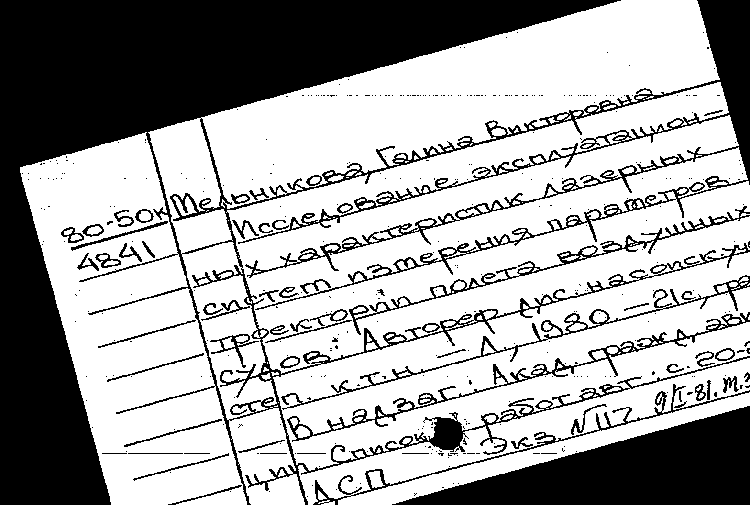 Мельникова, Галина Викторовна.
80-50к
4841
Исследование эксплуатацион-
ных характеристик лазерных
систем измерения параметров
траекторий полета воздушных
судов: Автореф дис. на соиск уч
степ. к.т.н. — Л., 1980 — 21с, гра
В надзаг.: Акад. гражд. ави
ции. Список работ авт.: с. 20-2
ДСП Экз №117 9/I-81.